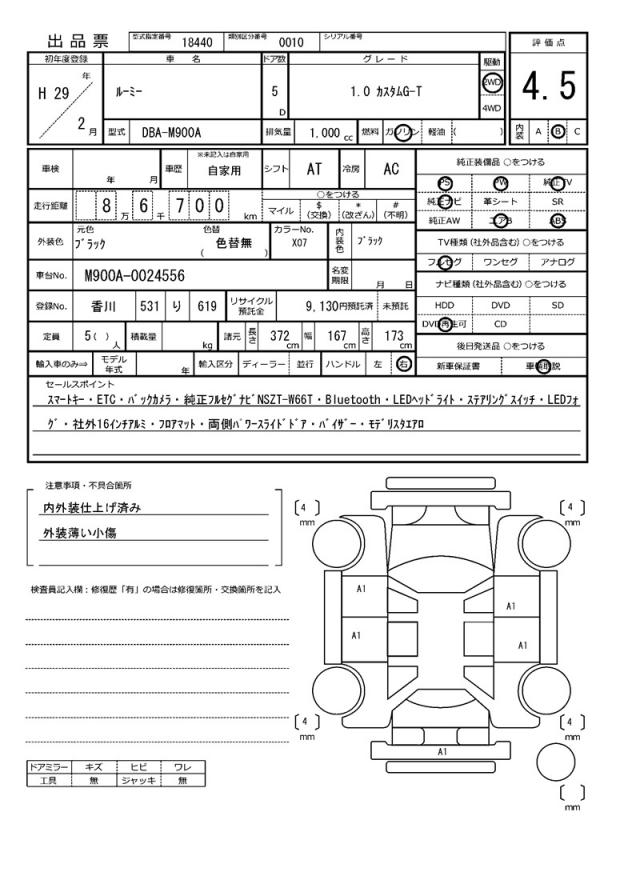 出品票 型式指定番号 18440 類別区分番号 0010 シリアル番号
評価点
4.5
初年度登録 車名 ドア数 グレード 駆動
H 29 年 2 月 ルーミー 5 D 1.0 カスタムG-T 2WD 4WD
型式 DBA-M900A 排気量 1,000 cc 燃料 ガソリン 軽油 ( ) 内装 A B C
車検 年 月 車歴 ※未記入は自家用 自家用 シフト AT 冷房 AC
走行距離 8 万 6 千 7 0 0 km ○をつける
マイル $ (交換) * (改ざん) # (不明)
外装色 元色 ブラック 色替 ( 色替無 ) カラーNo. X07 内装色 ブラック
車台No. M900A-0024556 名変期限 月 日
登録No. 香川 531 り 619 リサイクル預託金 9,130円預託済 未預託
定員 5( ) 人 積載量 kg 諸元 長さ 372 cm 幅 167 cm 高さ 173 cm
輸入車のみ⇒ モデル年式 年 輸入区分 ディーラー 並行 ハンドル 左 右
純正装備品 ○をつける
PS PW 純正TV
純正ナビ 革シート SR
純正AW エアB ABS
TV種類(社外品含む) ○をつける
フルセグ ワンセグ アナログ
ナビ種類(社外品含む) ○をつける
HDD DVD SD
DVD再生可 CD
後日発送品 ○をつける
新車保証書 車輌取説
セールスポイント
スマートキー・ETC・バックカメラ・純正フルセグナビNSZT-W66T・Bluetooth・LEDヘッドライト・ステアリングスイッチ・LEDフォ
グ・社外16インチアルミ・フロアマット・両側パワースライドドア・バイザー・モデリスタエアロ
注意事項・不具合箇所
内外装仕上げ済み
外装薄い小傷
検査員記入欄:修復歴「有」の場合は修復箇所・交換箇所を記入
ドアミラー キズ ヒビ ワレ
工具 無 ジャッキ 無
[ 4 ] mm [ 4 ] mm
A1 A1
A1 A1
[ 4 ] mm [ 4 ] mm
A1
[ ] mm